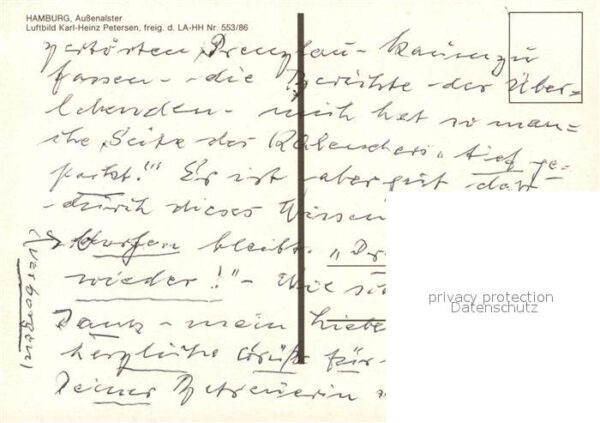 HAMBURG, Außenalster
Luftbild Karl-Heinz Petersen, freig. d. LA-HH Nr. 553/86
zerstörten Prenzlau - kaum zu
fassen - die Berichte der Über=
lebenden - mich hat so man=
che Seite des Kalenders „tief ge=
packt!" Es ist aber gut das
durch dieses Wissen
bleibt. „
wieder!" - Wie
Dank - mein Liebe
herzliche Grüße für
Deiner Betreuerin
(verborgen)
privacy protection
Datenschutz